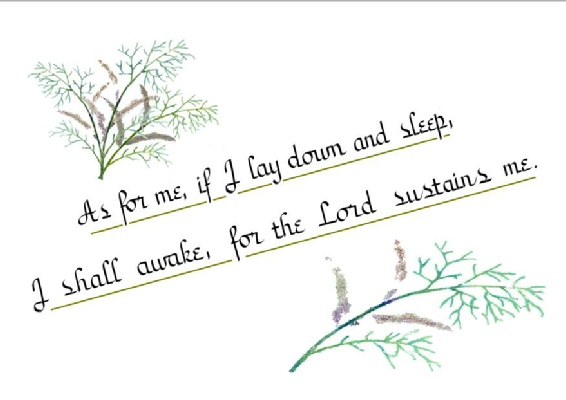 As for me, if I lay down and sleep,
I shall awake, for the Lord sustains me.